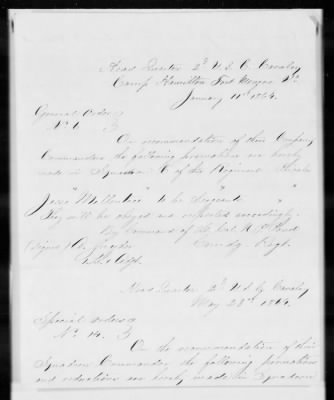 Head Quarter 2d U.S.C. Cavalry
Camp Hamilton Fort Monroe Va
January 11th 1864.
General Orders
No 1.
On recommendation of their Company
Commanders the following promotions are hereby
made in Squadron C of this Regiment
Jesse to be Sergeants
They will be obeyed and respected accordingly.
By command of
(Signed) Comdg Regt.
Adjt
Head Quarter 2d U.S.C. Cavalry
May 28th 1864.
Special Orders
No. 14.
On the recommendation of their
Squadron Commander, the following promotions
and reductions are hereby made in Squadron